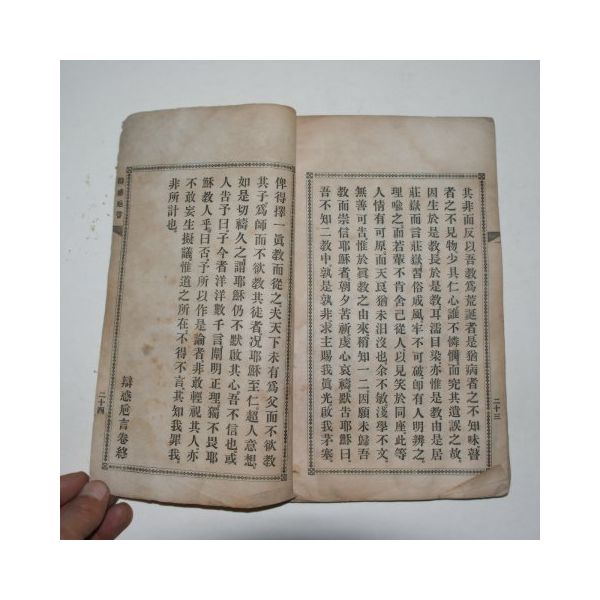 其非而反以吾教爲荒誕者是猶病者之不知味瞽
者之不見物少具仁心誰不憐憫而究其遺誤之故
因生於是教長於是教耳濡目染亦惟是教由是居
莊嶽而言莊嶽習俗成風牢不可破卽有人明辨之
理喩之而若輩不肯舍己從人以見笑於同座此等
人情有可原而天良猶未汨沒也余不敏淺學不文
無善可告惟於眞教之由來稍知一二因願未歸吾
教而崇信耶穌者朝夕苦祈虔心哀禱默告耶穌曰
吾不知二教中孰是孰非求主賜我眞光啟我茅塞
二十三
俾得擇一眞教而從之夫天下未有爲父而不欲教
其子爲師而不欲教其徒者况耶穌至仁超人意想
如是切禱久之謂耶穌仍不默啟其心吾不信也或
人告予曰子今者洋洋數千言闡明正理獨不畏耶
穌教人乎曰否予所以作是論者非敢輕視其人亦
不敢妄生擬議惟道之所在不得不言其知我罪我
非所計也
辯惑巵言卷終
二十四
辯惑巵言